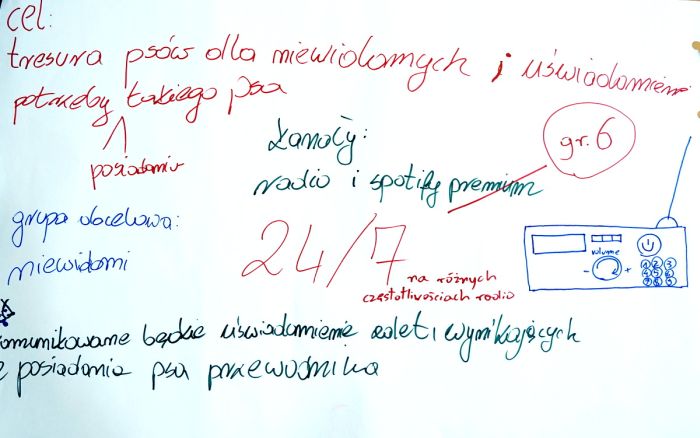 cel:
tresura psów dla niewidomych i uświadomienie
potrzeby takiego psa
posiadania
kanały:
radio i spotify premium
gr. 6
grupa docelowa:
niewidomi
24/7
na różnych
częstotliwościach radio
volume
- +
1 2 3
4 5 6
7 8 9
komunikowane będzie uświadomienie zalet wynikających
z posiadania psa przewodnika